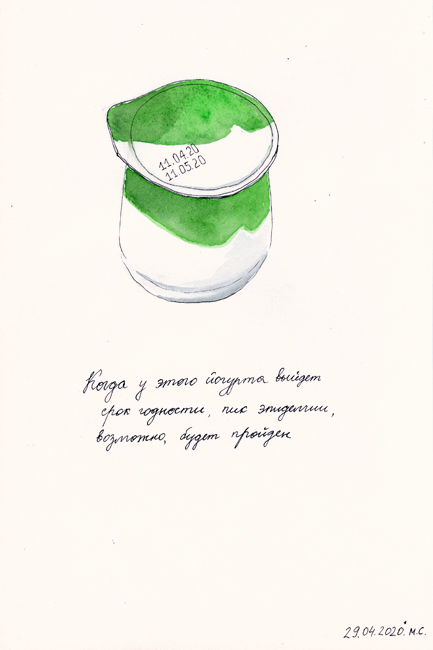 11.04.20
11.05.20
Когда у этого йогурта выйдет
срок годности, пик эпидемии,
возможно, будет пройден
29.04.2020. м.с.